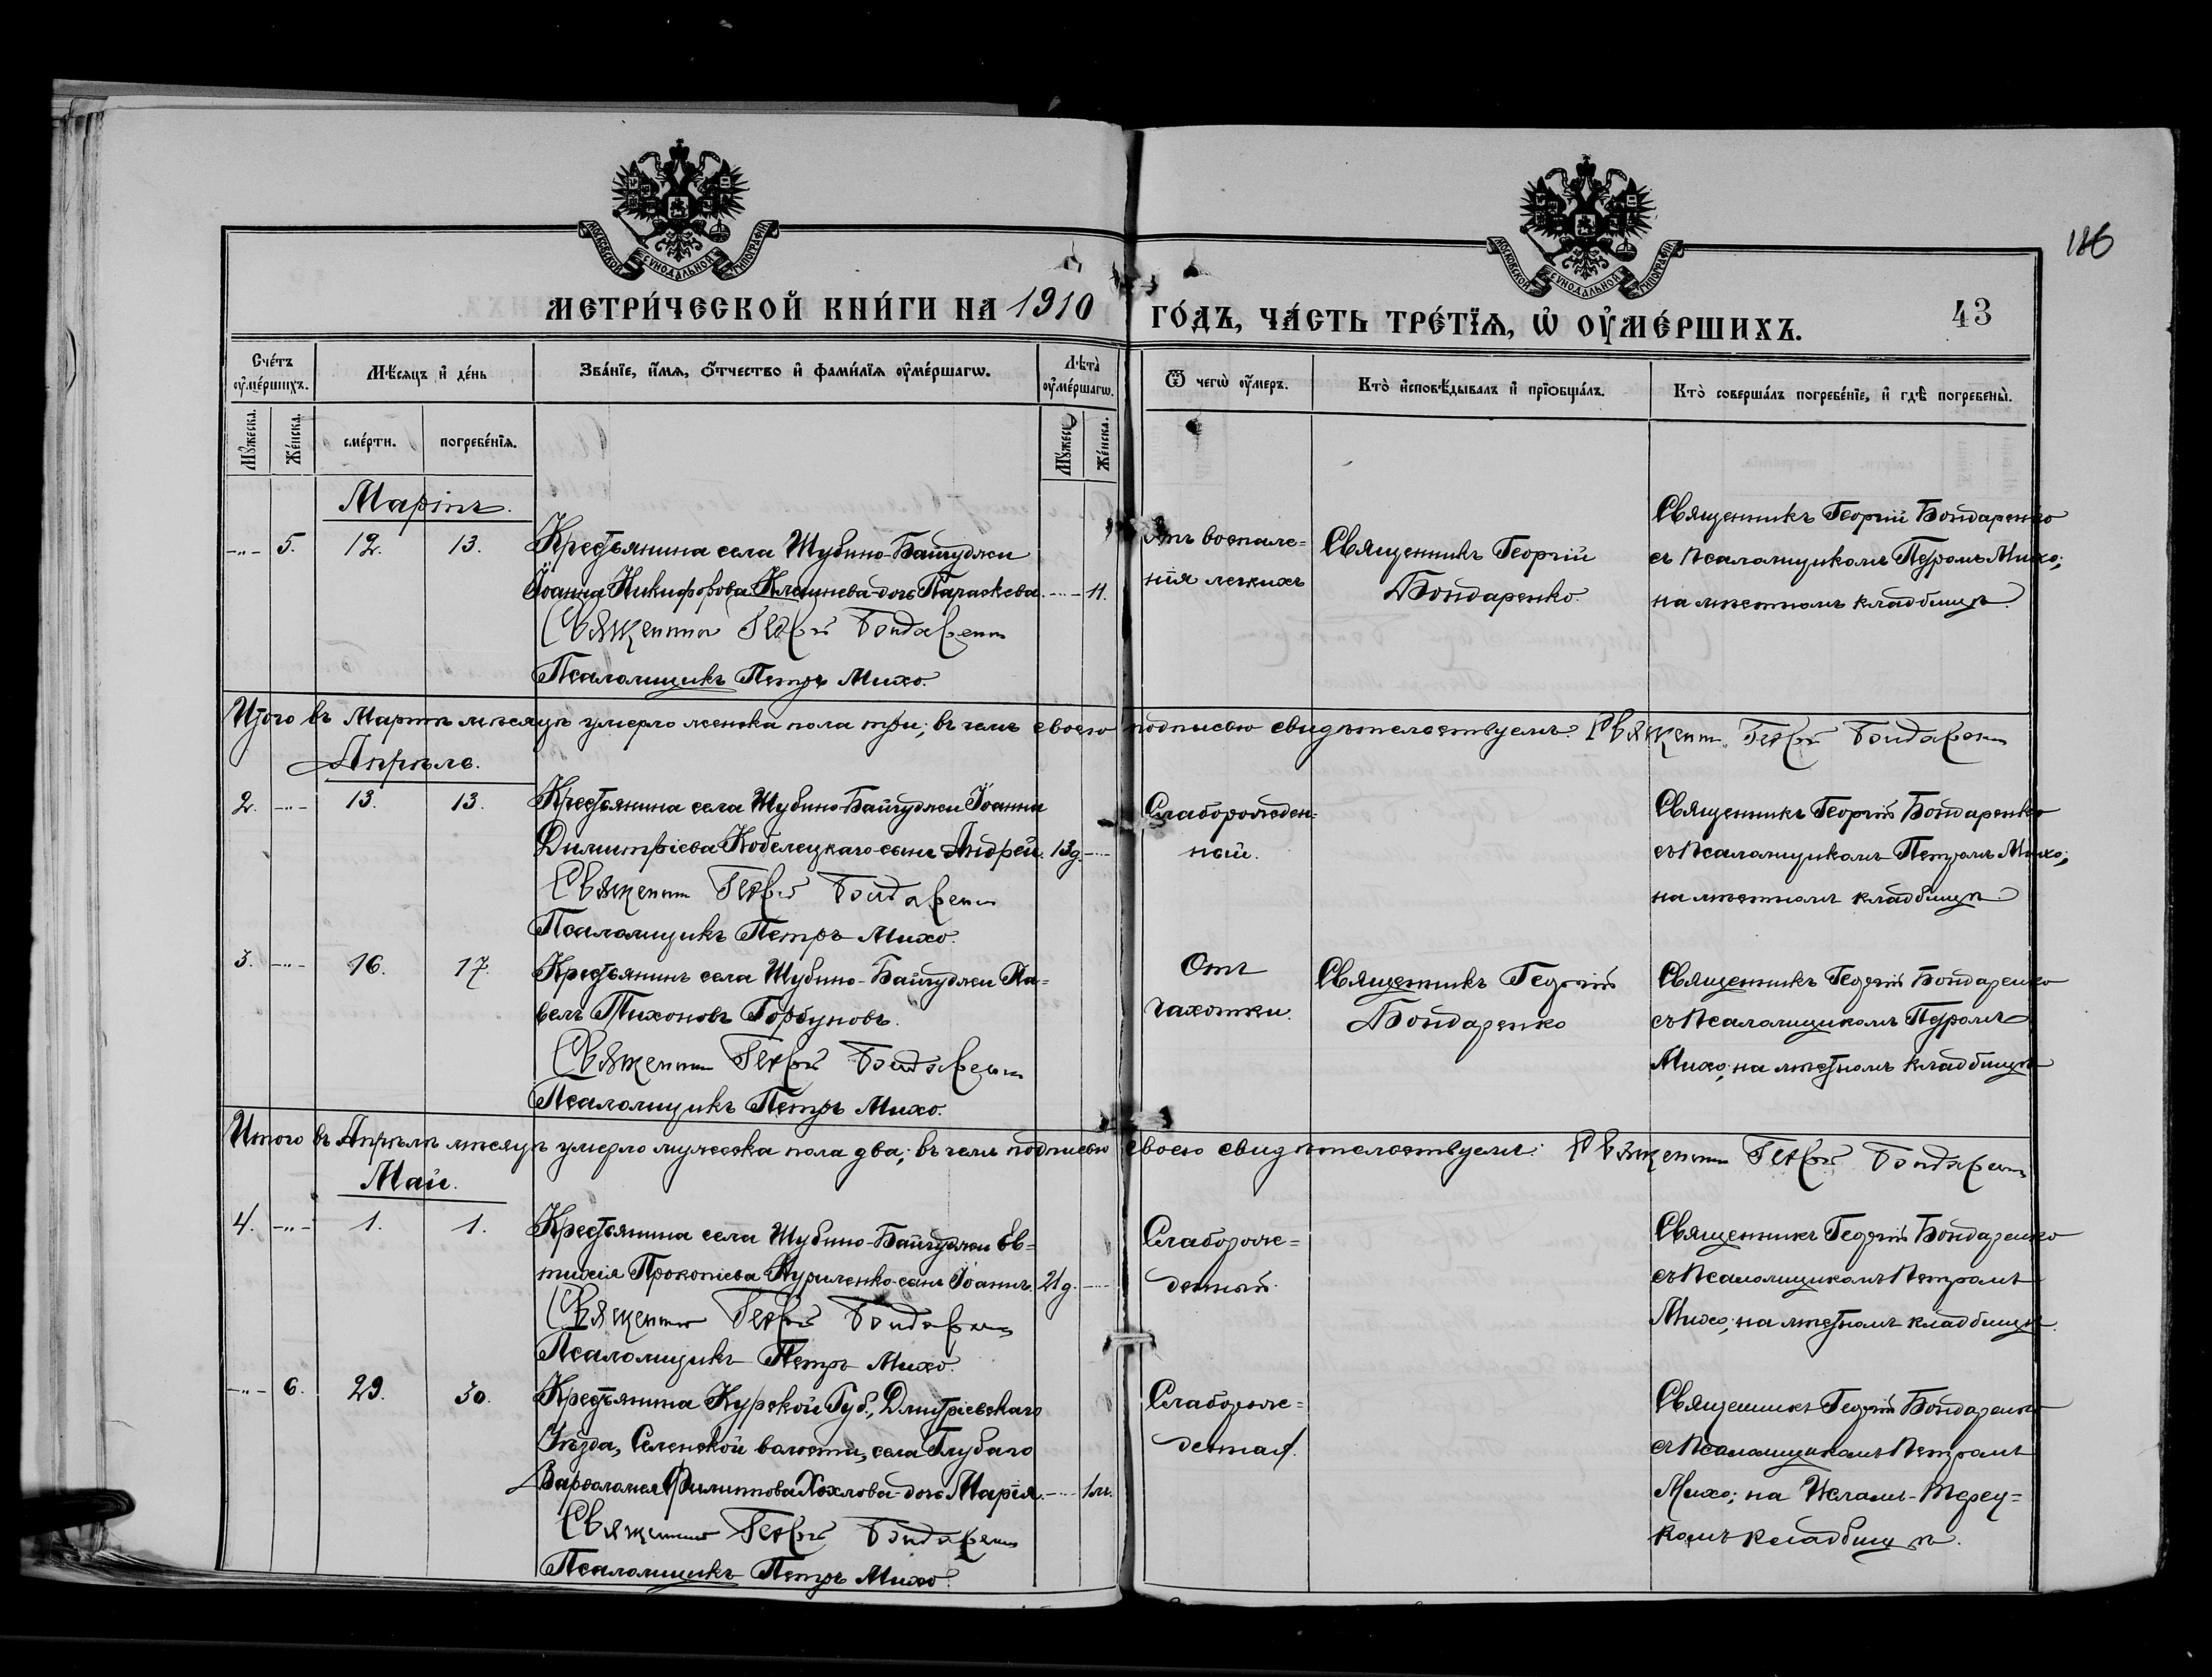 186
МОСКОВСКОЙ СУНОДАЛЬНОЙ ТИПОГРАФІИ
МОСКОВСКОЙ СУНОДАЛЬНОЙ ТИПОГРАФІИ
МЕТРИ́ЧЕСКОЙ КНИ́ГИ НА 1910 ГО́ДЪ, ЧА́СТЬ ТРЕ́ТІѦ, Ѡ҆ ОУ҆МЕ́РШИХЪ. 43
Сче́тъ оу҆ме́ршихъ.
Мѣ́сяцъ и҆ де́нь
Зва́нїе, и҆́мѧ, ѻ҆́тчество и҆ фами́лїѧ оу҆ме́ршагѡ.
Лѣ́та оу҆ме́ршагѡ.
Ѿ чегѡ̀ оу҆́меръ.
Кто̀ и҆сповѣ́дывалъ и҆ прїѻбща́лъ.
Кто̀ соверша́лъ погребе́нїе, и҆ гдѣ̀ погребены̀.
Мꙋ́жеска. Же́нска. сме́рти. погребе́нїѧ. Мꙋ́жеск. Же́нска.
Мартъ.
-„- 5. 12. 13.
Крестьянина села Шубино-Байгуджи
Іоанна Никифорова Клеинева дочь Параскева. -„- 11.
Священникъ Георгій Бондаренко
Псаломщикъ Петръ Михо.
Отъ воспале=
нія легкихъ
Священникъ Георгій
Бондаренко.
Священникъ Георгій Бондаренко
съ Псаломщикомъ Петромъ Михо;
на мѣстномъ кладбищѣ.
Итого въ Мартѣ мѣсяцѣ умерло женска пола три; въ чемъ своею подписью свидѣтельствуемъ: Священ. Георгій Бондаренко
Апрѣль.
2. -„- 13. 13.
Крестьянина села Шубино-Байгуджи Іоанна
Димитріева Кобелецкаго сынъ Андрей. 13 д. -„-
Священникъ Георгій Бондаренко
Псаломщикъ Петръ Михо.
Слаборожден=
ный.
Священникъ Георгій Бондаренко
съ Псаломщикомъ Петромъ Михо;
на мѣстномъ кладбищѣ.
3. -„- 16. 17.
Крестьянинъ села Шубино-Байгуджи Па=
велъ Тихоновъ Горбуновъ.
Священникъ Георгій Бондаренко
Псаломщикъ Петръ Михо.
Отъ
чахотки.
Священникъ Георгій
Бондаренко
Священникъ Георгій Бондаренко
съ Псаломщикомъ Петромъ
Михо; на мѣстномъ кладбищѣ
Итого въ Апрѣлѣ мѣсяцѣ умерло мужеска пола два; въ чемъ подписью своею свидѣтельствуемъ: Священникъ Георгій Бондаренко
Май.
4. -„- 1. 1.
Крестьянина села Шубино-Байгуджи Ев=
тихія Прокопіева Куриленко сынъ Іоаннъ. 21 д. -„-
Священникъ Георгій Бондаренко
Псаломщикъ Петръ Михо.
Слаборож=
денный.
Священникъ Георгій Бондаренко
съ Псаломщикомъ Петромъ
Михо; на мѣстномъ кладбищѣ.
-„- 6. 29. 30.
Крестьянина Курской Губ., Дмитріевскаго
Уѣзда, Селенской волости, села Глубаго
Варѳоломея Филиппова Хохлова дочь Марія. -„- 1 м.
Священникъ Георгій Бондаренко
Псаломщикъ Петръ Михо.
Слаборож=
денная.
Священникъ Георгій Бондаренко
съ Псаломщикомъ Петромъ
Михо; на Ислам-Терец=
комъ кладбищѣ.